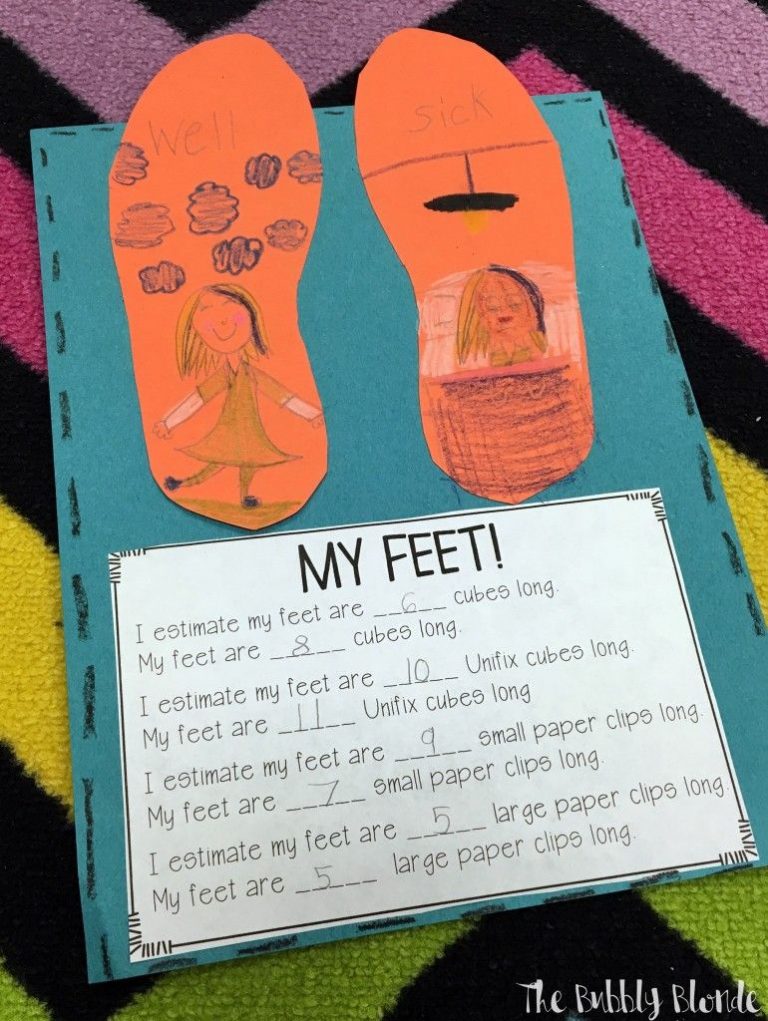 Well
Sick
MY FEET!
I estimate my feet are __6__ cubes long.
My feet are __8__ cubes long.
I estimate my feet are __10__ Unifix cubes long.
My feet are __11__ Unifix cubes long
I estimate my feet are __9__ small paper clips long.
My feet are __7__ small paper clips long.
I estimate my feet are __5__ large paper clips long.
My feet are __5__ large paper clips long.
The Bubbly Blonde